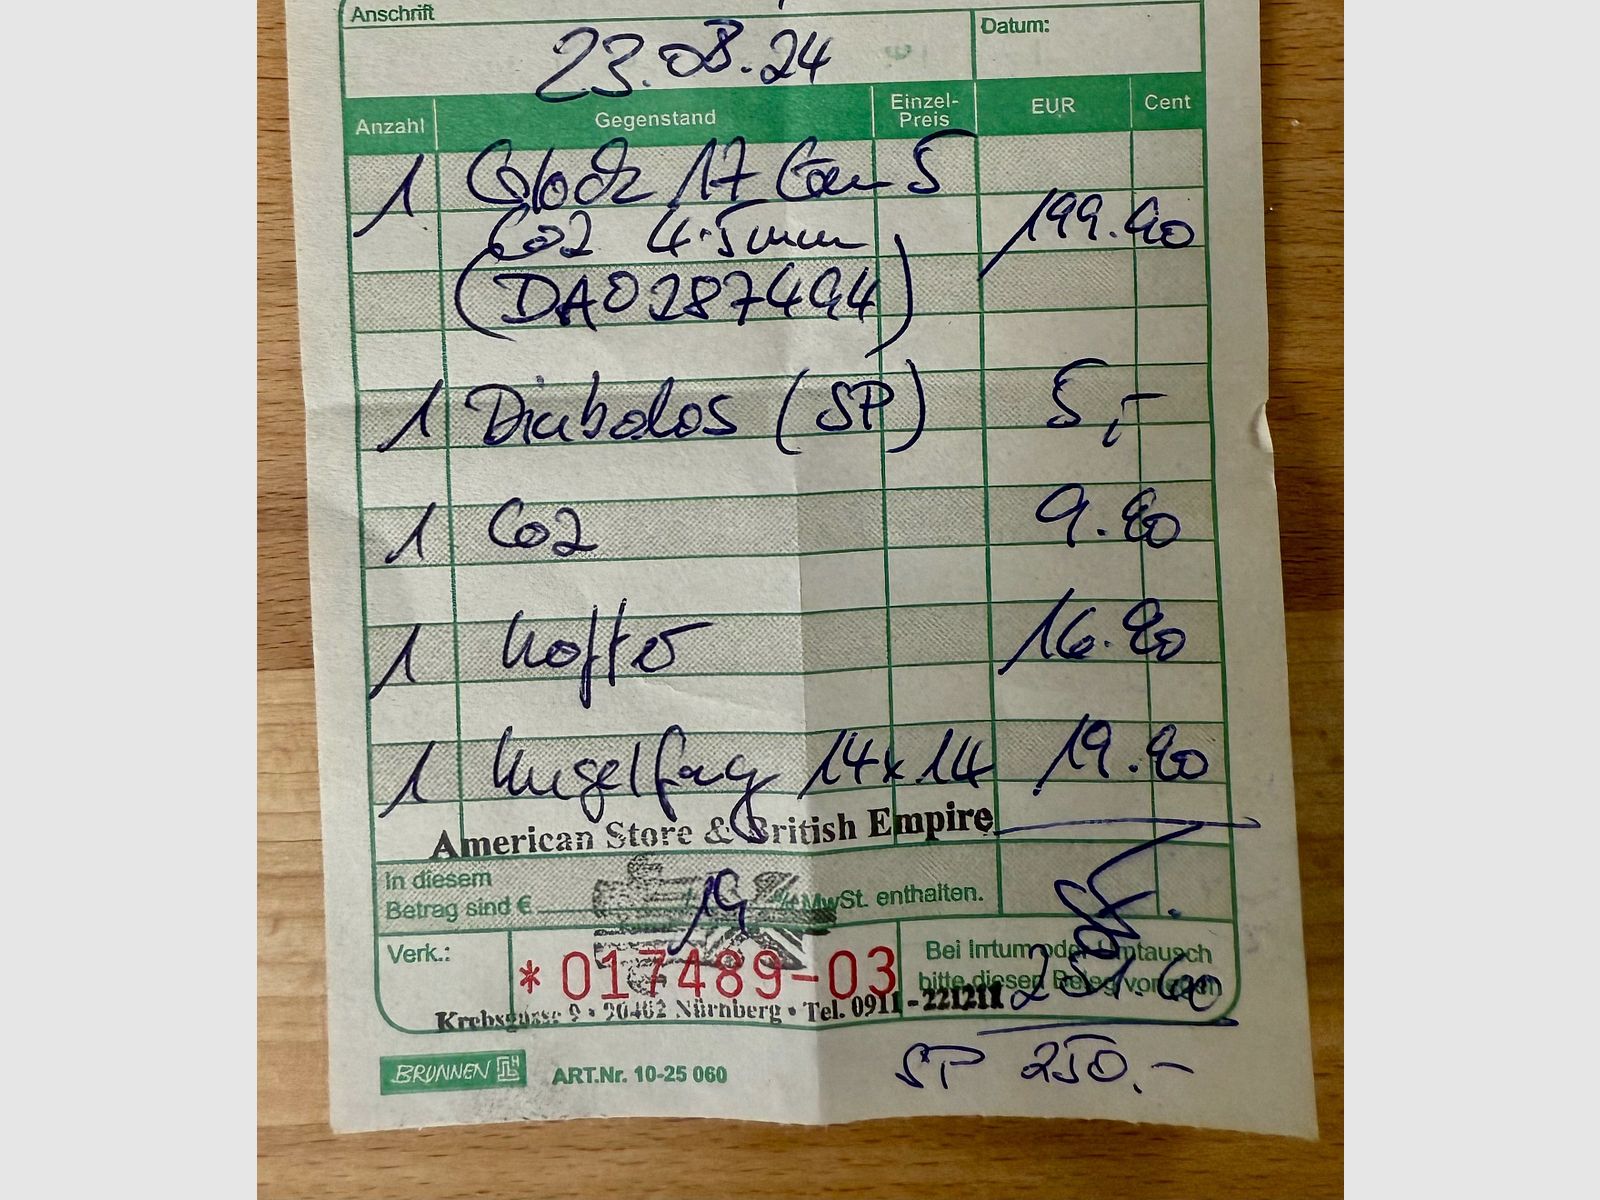 Anschrift
Datum:
23.08.24
Anzahl Gegenstand Einzel-Preis EUR Cent
1 Glock 17 Gen 5
Co2 4.5mm 199.90
(DAO287494)
1 Diabolos (SP) 5,-
1 Co2 9.90
1 Koffer 16.90
1 Kugelfang 14x14 19.90
American Store & British Empire
In diesem
Betrag sind € 19 % MwSt. enthalten.
Verk.:
*017489-03
Bei Irrtum oder Umtausch
bitte diesen Beleg vorlegen
251.60
Krebsgasse 9 • 90402 Nürnberg • Tel. 0911 - 221211
BRUNNEN
ART.Nr. 10-25 060
SP 250.-